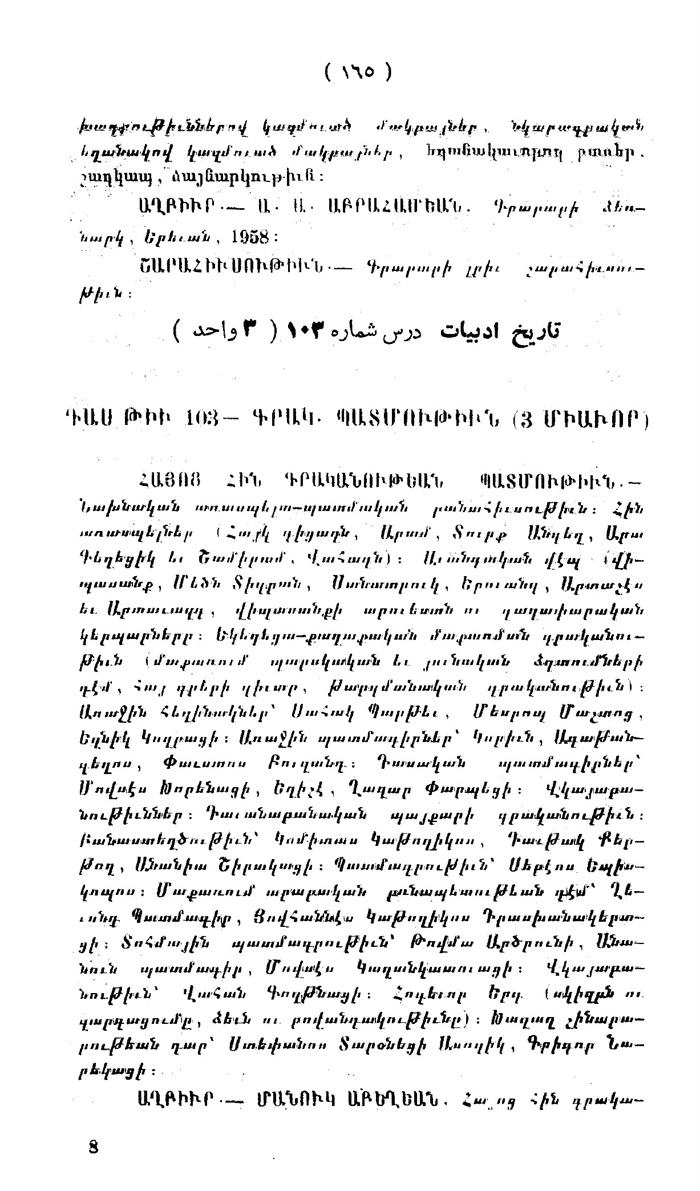 ( ١٦٥ )
խաղքութիւններով կազմուած մակբայներ, նկարագրական
եղանակով կազմուած մակբայներ, եղանակաւորող բառեր.
շաղկապ, ձայնարկութիւն:
ԱՂԲԻՒՐ.— Ա. Ա. ԱԲՐԱՀԱՄԵԱՆ. Գրաբարի ձեռ—
նարկ, Երեւան, 1958:
ՇԱՐԱՀԻՒՍՈՒԹԻՒՆ.— Գրաբարի լրիւ շարահիւսու—
թիւն:
تاریخ ادبیات درس شماره ۱۰۳ ( ۳ واحد )
ԴԱՍ ԹԻՒ 103— ԳՐԱԿ. ՊԱՏՄՈՒԹԻՒՆ (3 ՄԻԱՒՈՐ)
ՀԱՅՈՑ ՀԻՆ ԳՐԱԿԱՆՈՒԹԵԱՆ ՊԱՏՄՈՒԹԻՒՆ.—
Նախնական առասպելա—պատմական բանահիւսութիւն: Հին
առասպելներ (Հայկ դիցազն, Արամ, Տուրք Անգեղ, Արա
Գեղեցիկ եւ Շամիրամ, Վահագն): Աւանդական վէպ (վի—
պասանք, Մեծն Տիգրան, Սանատրուկ, Երուանդ, Արտաշէս
եւ Արտաւազդ, վիպասանքի արուեստն ու գաղափարական
կերպարները: Եկեղեցա—քաղաքական մաքառման գրականու—
թիւն (մաքառում պարսկական եւ յունական ձգտումների
դէմ, Հայ գրերի գիւտը, թարգմանական գրականութիւն):
Առաջին հեղինակներ՝ Սահակ Պարթեւ, Մեսրոպ Մաշտոց,
Եզնիկ Կողբացի: Առաջին պատմագիրներ՝ Կորիւն, Ագաթան—
գեղոս, Փաւստոս Բուզանդ: Դասական պատմագիրներ՝
Մովսէս Խորենացի, Եղիշէ, Ղազար Փարպեցի: Վկայաբա—
նութիւններ: Դաւանաբանական պայքարի գրականութիւն:
Բանաստեղծութիւն՝ Կոմիտաս Կաթողիկոս, Դաւթակ Քեր—
թող, Անանիա Շիրակացի: Պատմագրութիւն՝ Սեբէոս Եպիս—
կոպոս: Մաքառում արաբական բռնապետութեան դէմ՝ Ղե—
ւոնդ Պատմագիր, Յովհաննէս Կաթողիկոս Դրասխանակերտ—
ցի: Տոհմային պատմագրութիւն՝ Թովմա Արծրունի, Անա—
նուն պատմագիր, Մովսէս Կաղանկատուացի: Վկայաբա—
նութիւն՝ Վահան Գողթնացի: Հոգեւոր Երգ (սկիզբն ու
զարգացումը, ձեւն ու բովանդակութիւնը): Խաղաղ շինարա—
րութեան դար՝ Ստեփանոս Տարօնեցի Ասողիկ, Գրիգոր Նա—
րեկացի:
ԱՂԲԻՒՐ.— ՄԱՆՈՒԿ ԱԲԵՂԵԱՆ. Հայոց հին գրակա—
8